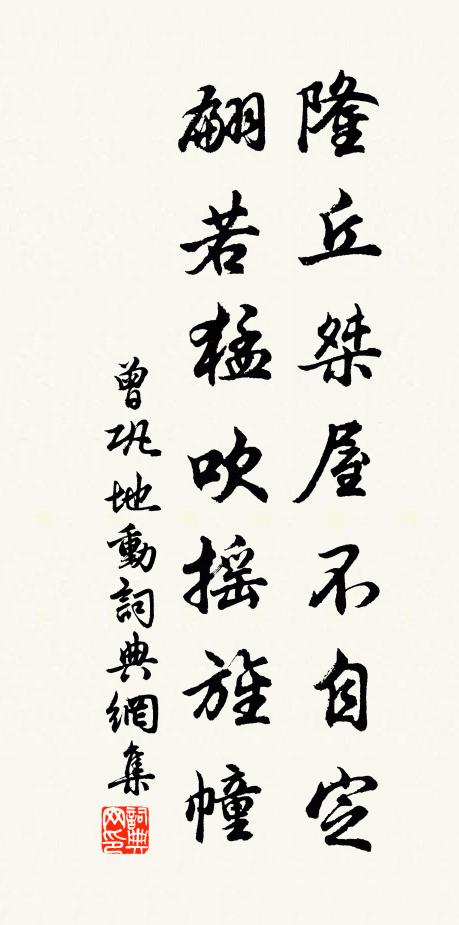 隆丘桀屋不自定
翩若猛吹摇旌幢
曾巩地動詞典網集
詞典网印